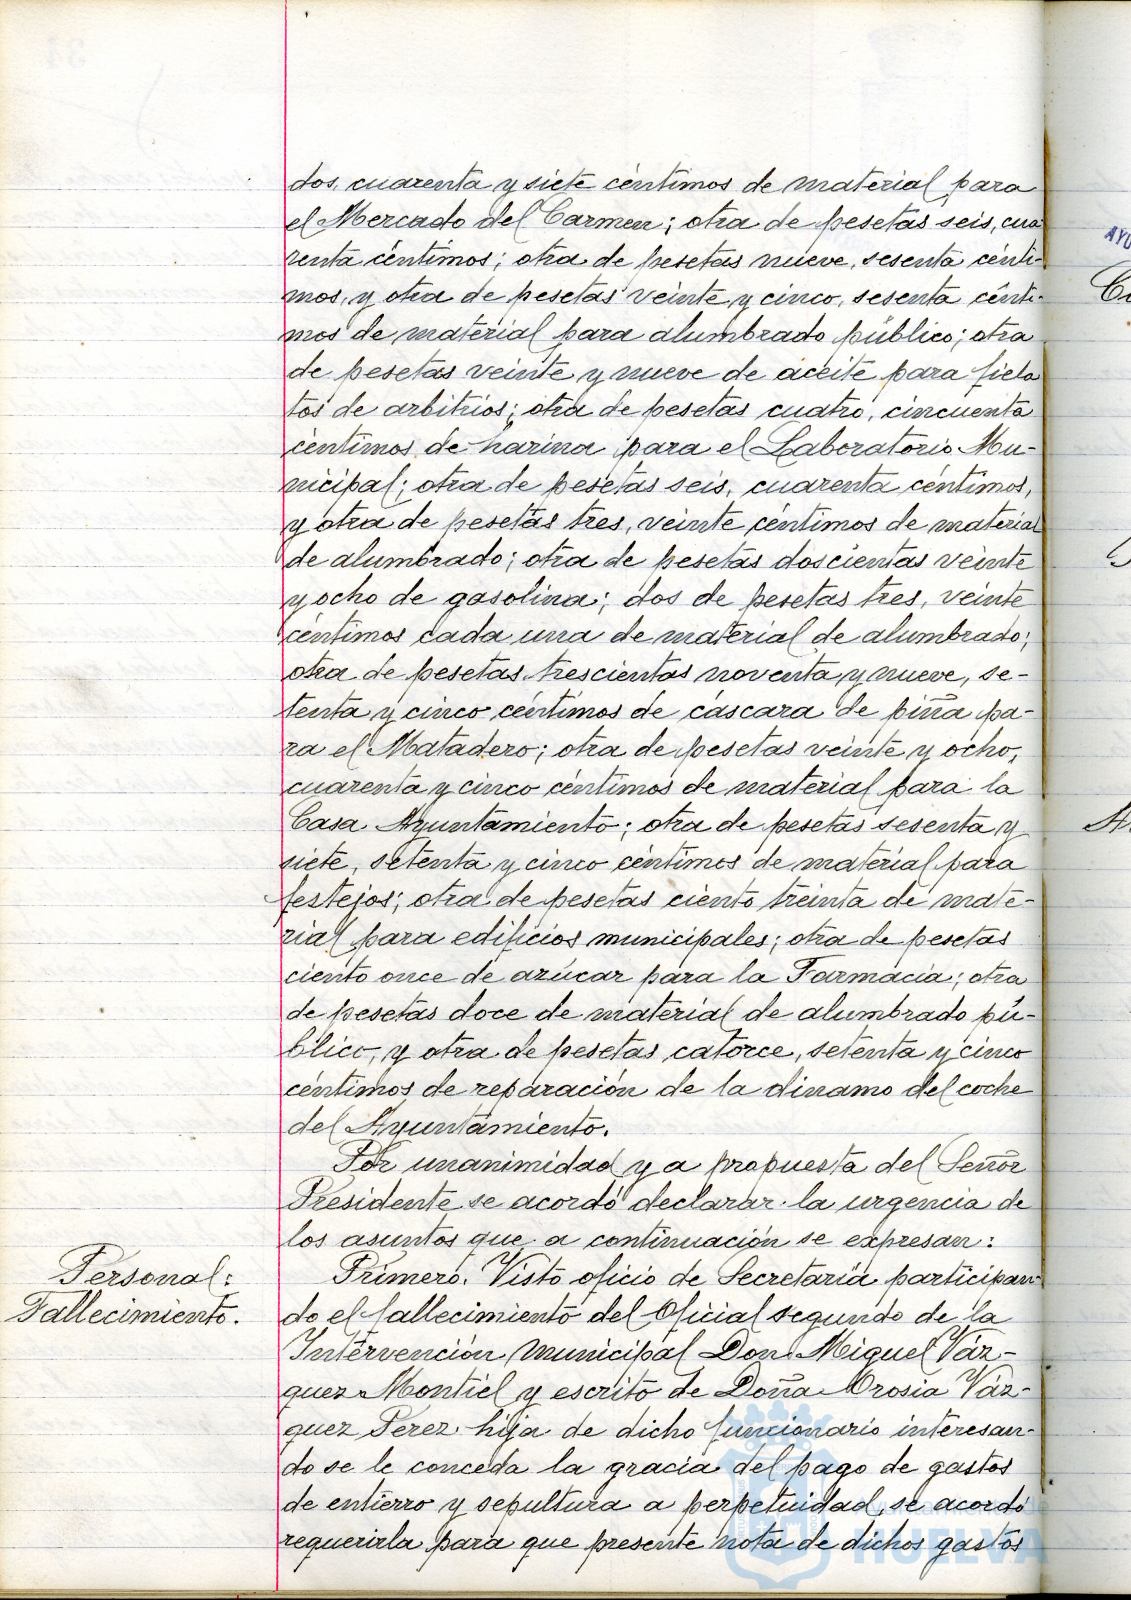 dos, cuarenta y siete céntimos de material para
el Mercado del Carmen; otra de pesetas seis, cua
renta céntimos; otra de pesetas nueve, sesenta cénti-
mos, y otra de pesetas veinte y cinco, sesenta cénti-
mos de material para alumbrado público; otra
de pesetas veinte y nueve de aceite para fiela
tos de arbitrios; otra de pesetas cuatro, cincuenta
céntimos de harina para el Laboratorio Mu-
nicipal; otra de pesetas seis, cuarenta céntimos,
y otra de pesetas tres, veinte céntimos de material
de alumbrado; otra de pesetas doscientas veinte
y ocho de gasolina; dos de pesetas tres, veinte
céntimos cada una de material de alumbrado;
otra de pesetas trescientas noventa y nueve, se-
tenta y cinco céntimos de cáscara de piña pa-
ra el Matadero; otra de pesetas veinte y ocho,
cuarenta y cinco céntimos de material para la
Casa Ayuntamiento; otra de pesetas sesenta y
siete, setenta y cinco céntimos de material para
festejos; otra de pesetas ciento treinta de mate-
rial para edificios municipales; otra de pesetas
ciento once de azúcar para la Farmacia; otra
de pesetas doce de material de alumbrado pú-
blico, y otra de pesetas catorce, setenta y cinco
céntimos de reparación de la dinamo del coche
del Ayuntamiento.
Por unanimidad y a propuesta del Señor
Presidente se acordó declarar la urgencia de
los asuntos que a continuación se expresan:
Personal:
Fallecimiento.
Primero. Visto oficio de Secretaría participan
do el fallecimiento del Oficial segundo de la
Intervención Municipal Don Miguel Váz-
quez Montiel y escrito de Doña Orosia Váz-
quez Perez hija de dicho funcionario interesan-
do se le conceda la gracia del pago de gastos
de entierro y sepultura a perpetuidad, se acordó
requerirla para que presente nota de dichos gastos
HUELVA
AYU